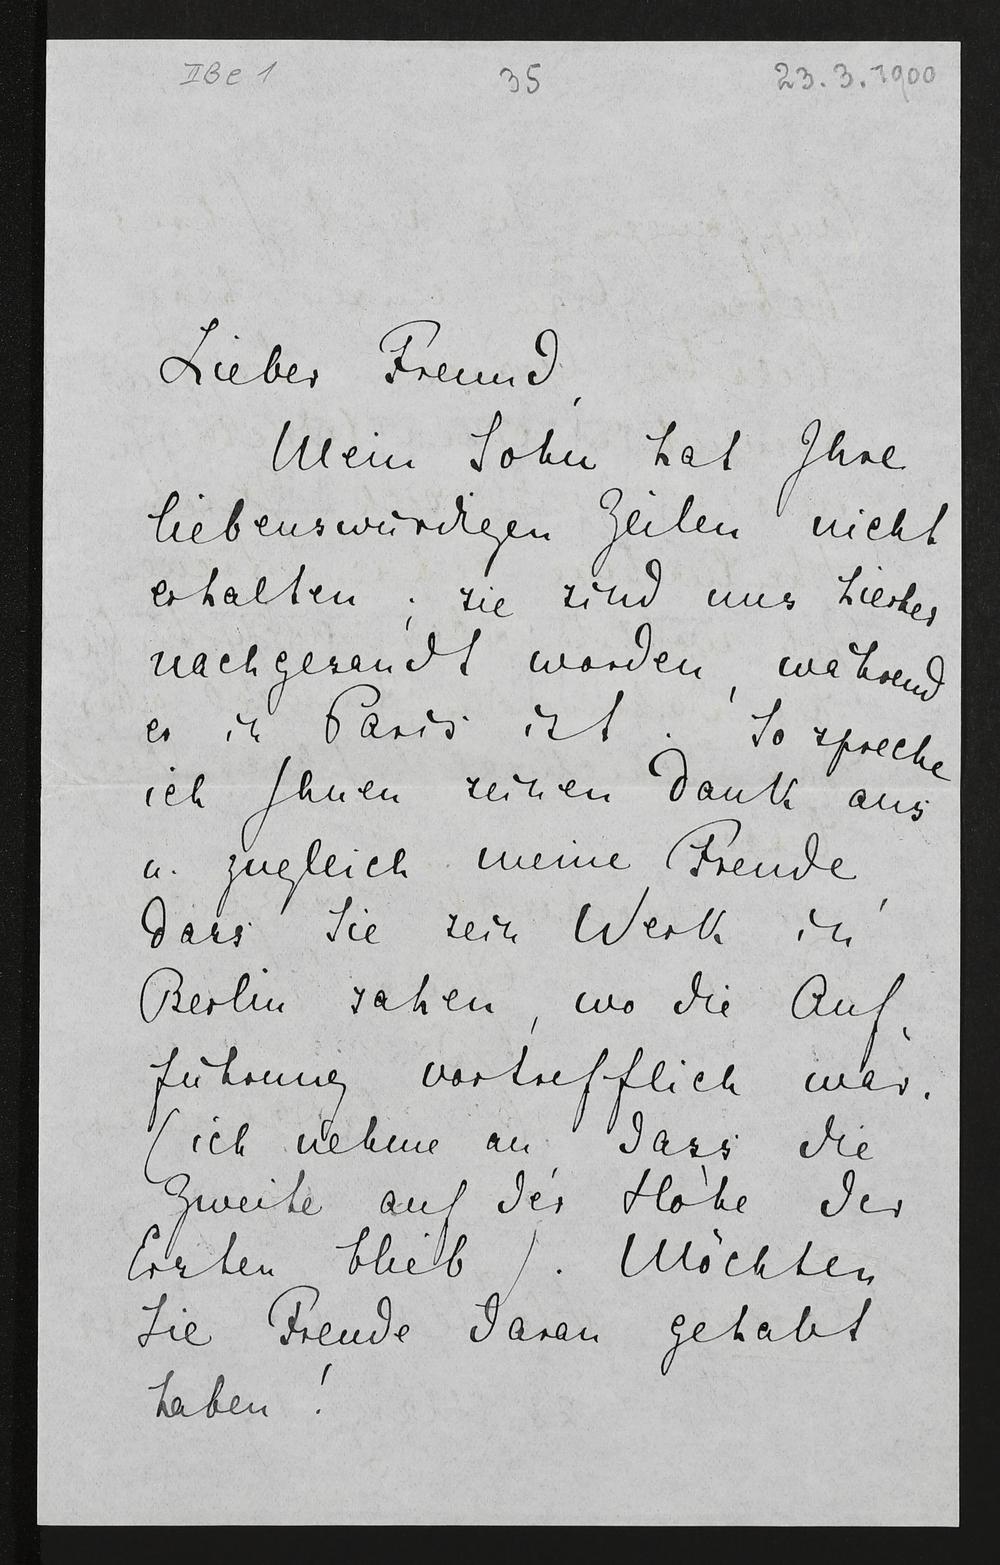 IIBe 1 35 23.3.1900
Lieber Freund,
Mein Sohn hat Ihre
liebenswürdigen Zeilen nicht
erhalten ; sie sind uns hierher
nachgesandt worden, während
er in Paris ist . So spreche
ich Ihnen seinen Dank aus
u. zugleich meine Freude,
dass Sie sein Werk in
Berlin sahen, wo die Auf-
führung vortrefflich war.
(ich nehme an, dass die
Zweite auf der Höhe der
Ersten blieb ). Möchten
Sie Freude daran gehabt
haben !